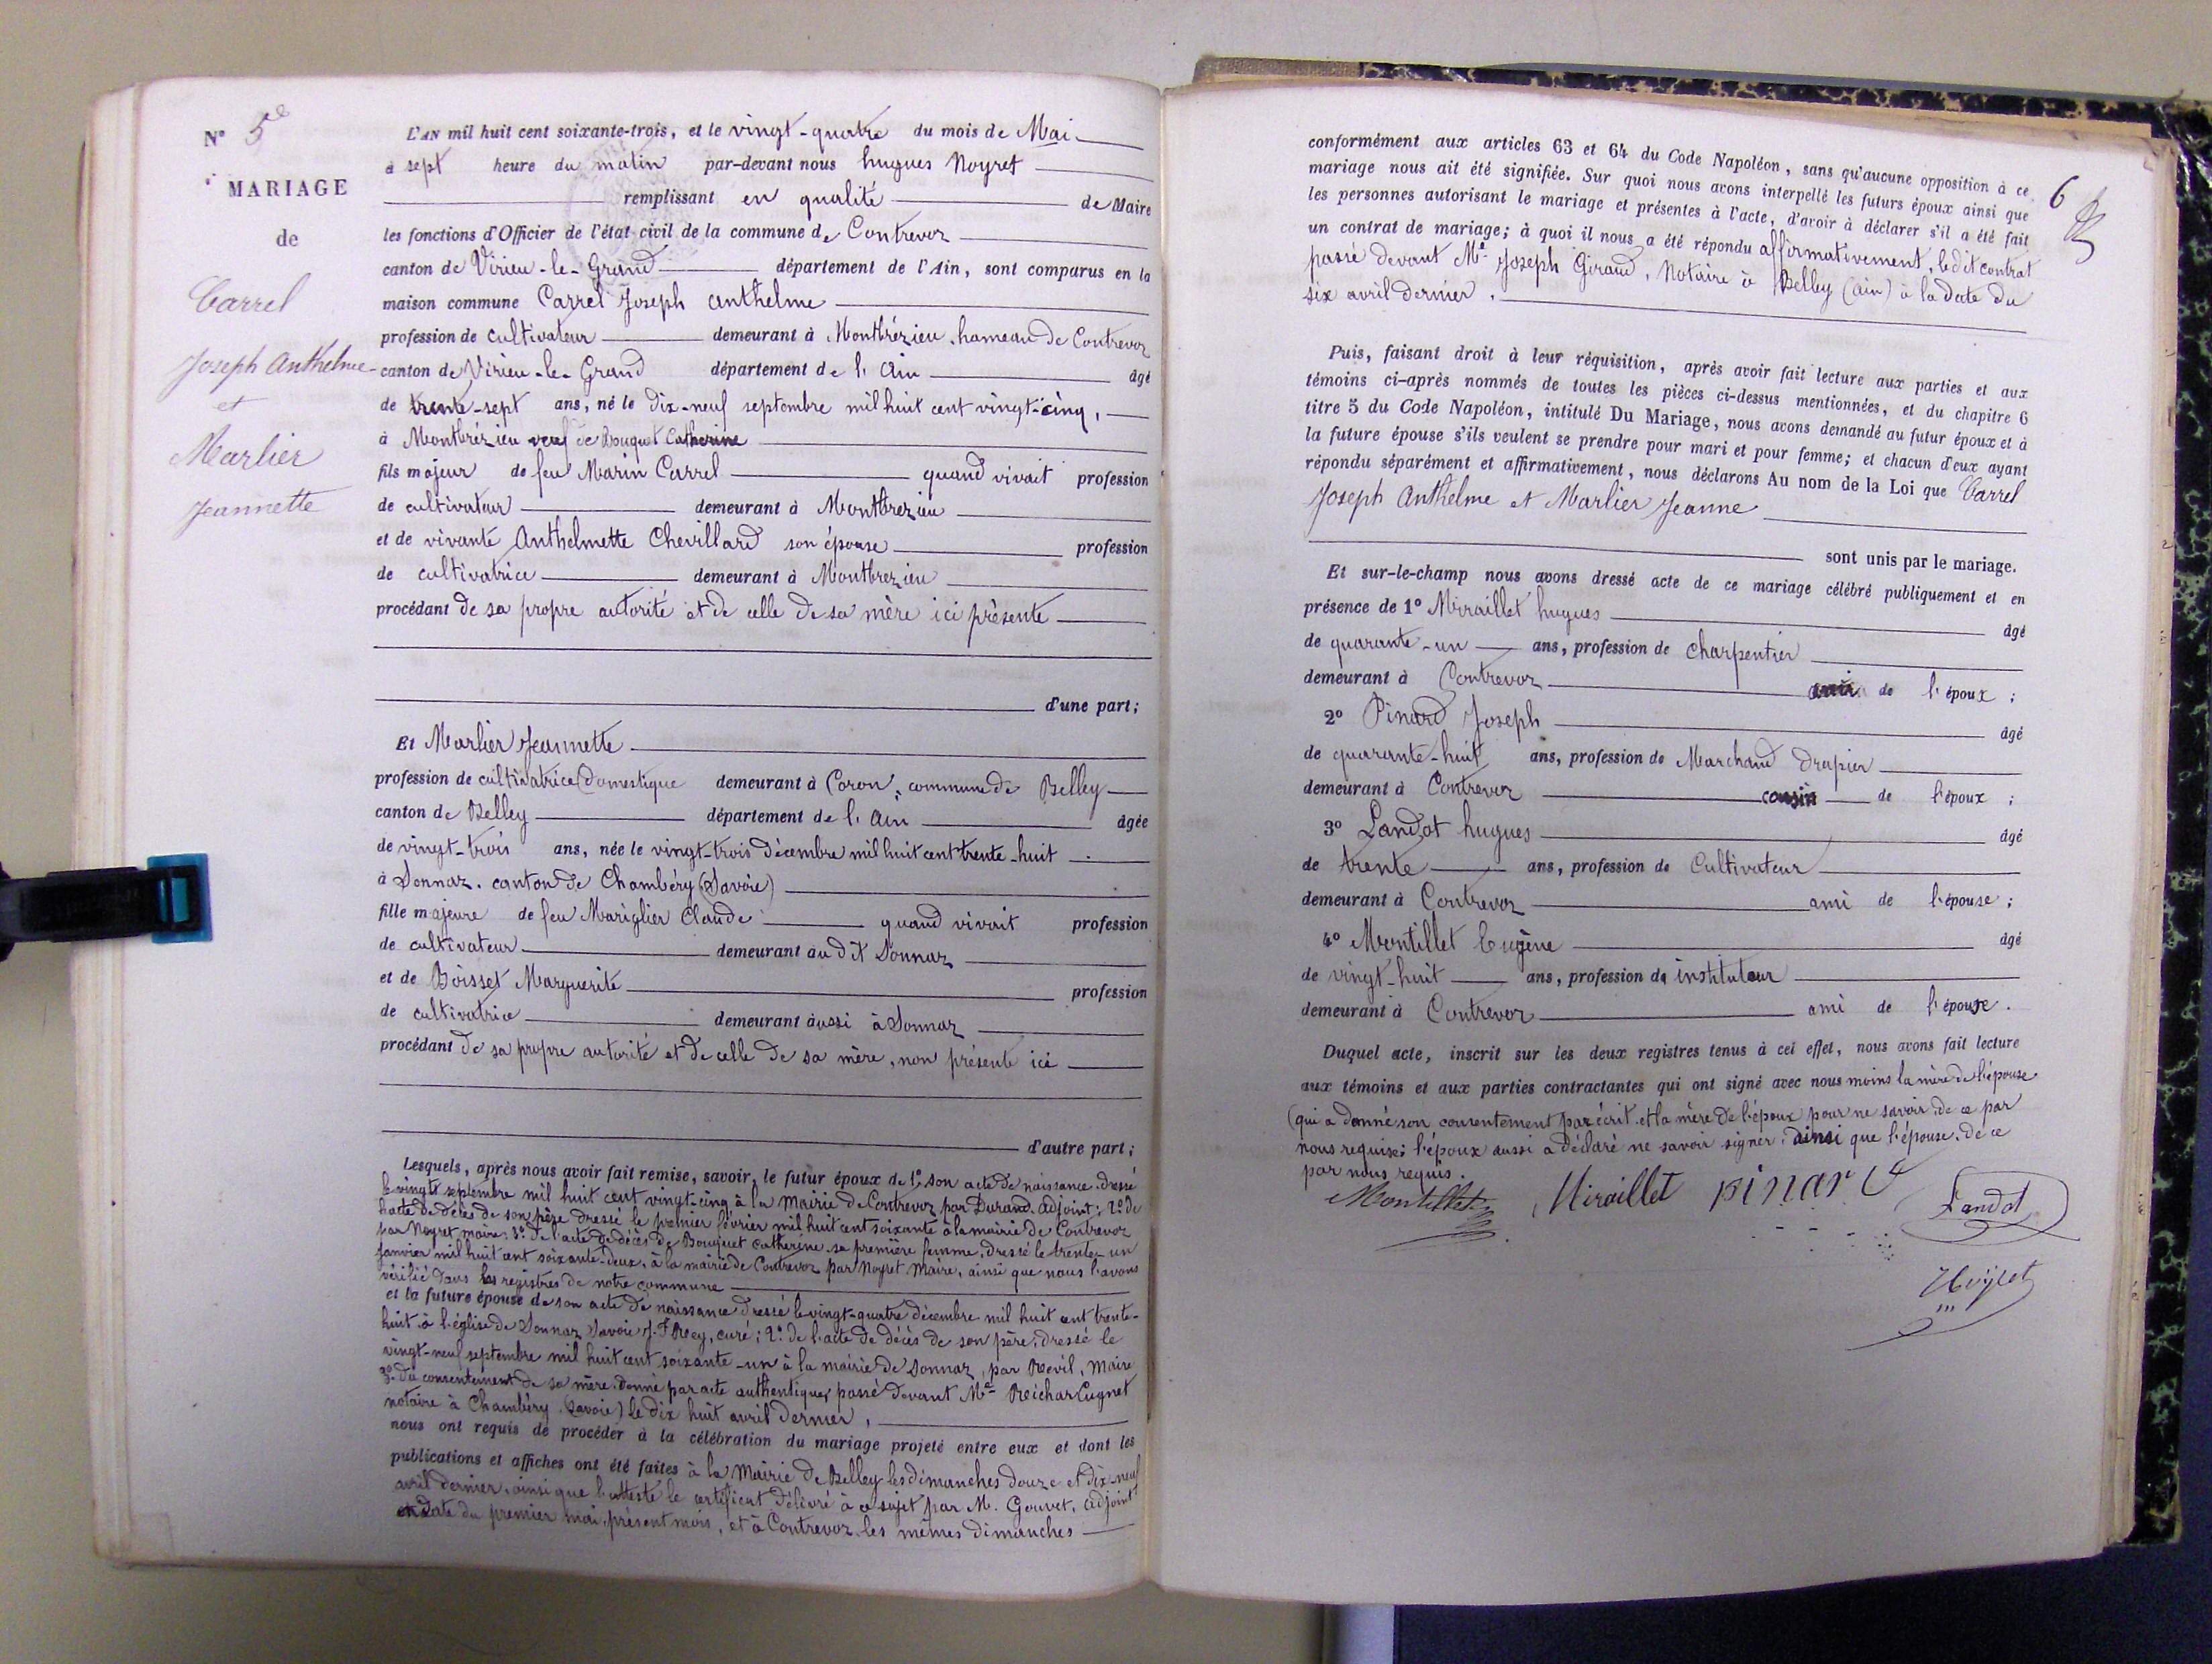 N° 5e
MARIAGE
de
Carrel
Joseph Anthelme
et
Marlier
Jeannette
L'AN mil huit cent soixante-trois, et le vingt-quatre du mois de Mai
à sept heure du matin par-devant nous hugues Noyret
remplissant en qualité de Maire
les fonctions d'Officier de l'état civil de la commune de Contrevoz
canton de Virieu-le-Grand département de l'Ain, sont comparus en la
maison commune Carrel Joseph anthelme
profession de cultivateur demeurant à Montbrézieu, hameau de Contrevoz
canton de Virieu-le-Grand département de l'Ain âgé
de trente-sept ans, né le dix-neuf septembre mil huit cent vingt-cinq,
à Montbrézieu veuf de Bouquet Catherine
fils majeur de feu Marin Carrel quand vivait profession
de cultivateur demeurant à Montbrezieu
et de vivante Anthelmette Chevillard son épouse profession
de cultivatrice demeurant à Montbrezieu
procédant de sa propre autorité et de celle de sa mère ici présente
d'une part;
Et Marlier Jeannette
profession de cultivatrice (domestique demeurant à Coron, commune de Belley
canton de Belley département de l'Ain âgée
de vingt-trois ans, née le vingt-trois décembre mil huit cent trente-huit
à Sonnaz, canton de Chambéry (Savoie)
fille majeure de feu Mariglier Claude quand vivait profession
de cultivateur demeurant au dit Sonnaz
et de Boisset Marguerite profession
de cultivatrice demeurant aussi à Sonnaz
procédant de sa propre autorité et de celle de sa mère, non présente ici
d'autre part;
Lesquels, après nous avoir fait remise, savoir, le futur époux de 1° son acte de naissance dressé
le vingt septembre mil huit cent vingt-cinq à la Mairie de Contrevoz par Durand, adjoint; 2° de
l'acte de décès de son père dressé le premier février mil huit cent soixante à la mairie de Contrevoz
par Noyret maire; 3° de l'acte de décès de Bouquet Catherine sa première femme, dressé le trente-un
janvier mil huit cent soixante-deux, à la mairie de Contrevoz par Noyret Maire, ainsi que nous l'avons
vérifié dans les registres de notre commune
et la future épouse de son acte de naissance dressé le vingt-quatre décembre mil huit cent trente-
huit à l'église de Sonnaz Savoie J.F Rey, curé; 2° de l'acte de décès de son père, dressé le
vingt-neuf septembre mil huit cent soixante-un à la mairie de Sonnaz, par Revil, Maire
3° du consentement de sa mère donné par acte authentique, passé devant Me Reichar Cugnet
notaire à Chambéry (Savoie) le dix huit avril dernier,
nous ont requis de procéder à la célébration du mariage projeté entre eux et dont les
publications et affiches ont été faites à la Mairie de Belley les dimanches douze et dix-neuf
avril dernier, ainsi que l'atteste le certificat délivré à ce sujet par M. Gouvet, adjoint
en date du premier mai, présent mois, et à Contrevoz les mêmes dimanches
conformément aux articles 63 et 64 du Code Napoléon, sans qu'aucune opposition à ce
mariage nous ait été signifiée. Sur quoi nous avons interpellé les futurs époux ainsi que
les personnes autorisant le mariage et présentes à l'acte, d'avoir à déclarer s'il a été fait
un contrat de mariage; à quoi il nous a été répondu affirmativement, le dit contrat
passé devant Me Joseph Giraud, Notaire à Belley (ain) à la date du
six avril dernier.
6
Puis, faisant droit à leur réquisition, après avoir fait lecture aux parties et aux
témoins ci-après nommés de toutes les pièces ci-dessus mentionnées, et du chapitre 6
titre 5 du Code Napoléon, intitulé Du Mariage, nous avons demandé au futur époux et à
la future épouse s'ils veulent se prendre pour mari et pour femme; et chacun d'eux ayant
répondu séparément et affirmativement, nous déclarons Au nom de la Loi que Carrel
Joseph Anthelme et Marlier Jeanne
sont unis par le mariage.
Et sur-le-champ nous avons dressé acte de ce mariage célébré publiquement et en
présence de 1° Miraillet hugues âgé
de quarante-un ans, profession de charpentier
demeurant à Contrevoz de l'époux;
2° Pinard Joseph âgé
de quarante-huit ans, profession de Marchand drapier
demeurant à Contrevoz cousin de l'époux;
3° Landot hugues âgé
de trente ans, profession de Cultivateur
demeurant à Contrevoz ami de l'épouse;
4° Montillet Eugène âgé
de vingt-huit ans, profession de instituteur
demeurant à Contrevoz ami de l'épouse.
Duquel acte, inscrit sur les deux registres tenus à cet effet, nous avons fait lecture
aux témoins et aux parties contractantes qui ont signé avec nous moins la mère de l'épouse
(qui a donné son consentement par écrit et la mère de l'époux pour ne savoir, de ce par
nous requise; l'époux aussi a déclaré ne savoir signer, ainsi que l'épouse, de ce
par nous requis.
Montillet Miraillet pinard Landot
Noyret